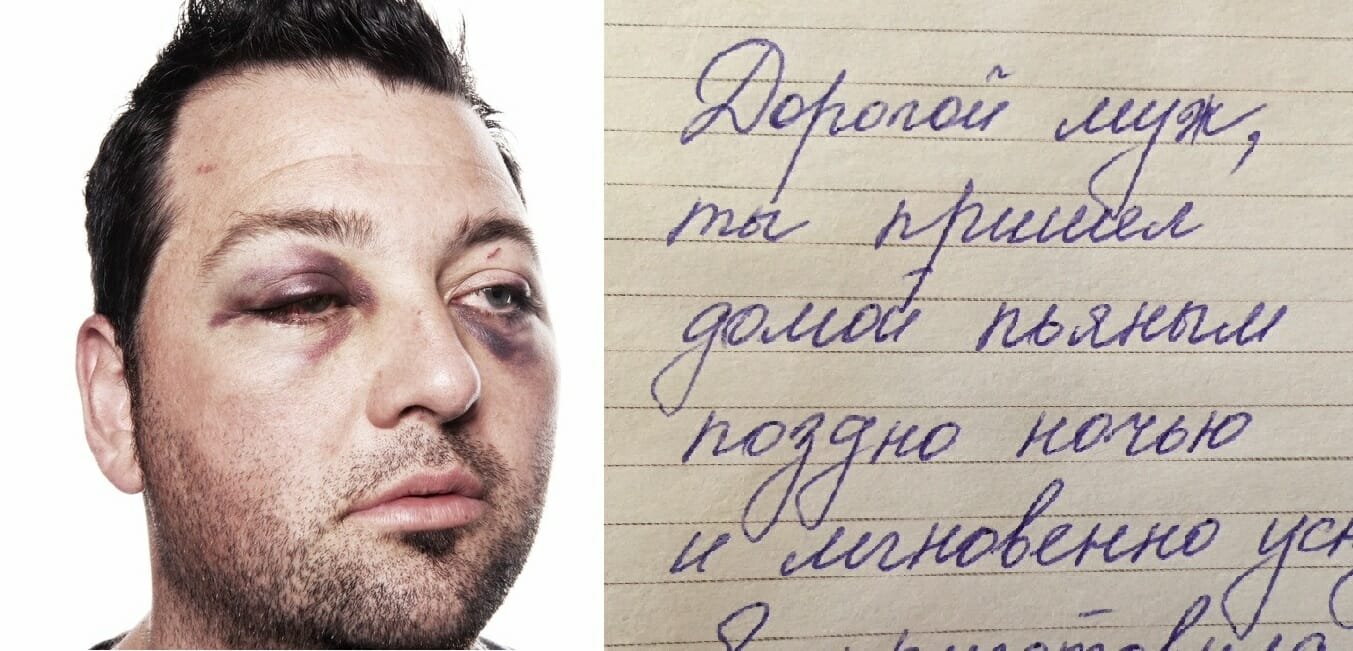 Дорогой муж,
ты пришел
домой пьяным
поздно ночью
и мгновенно